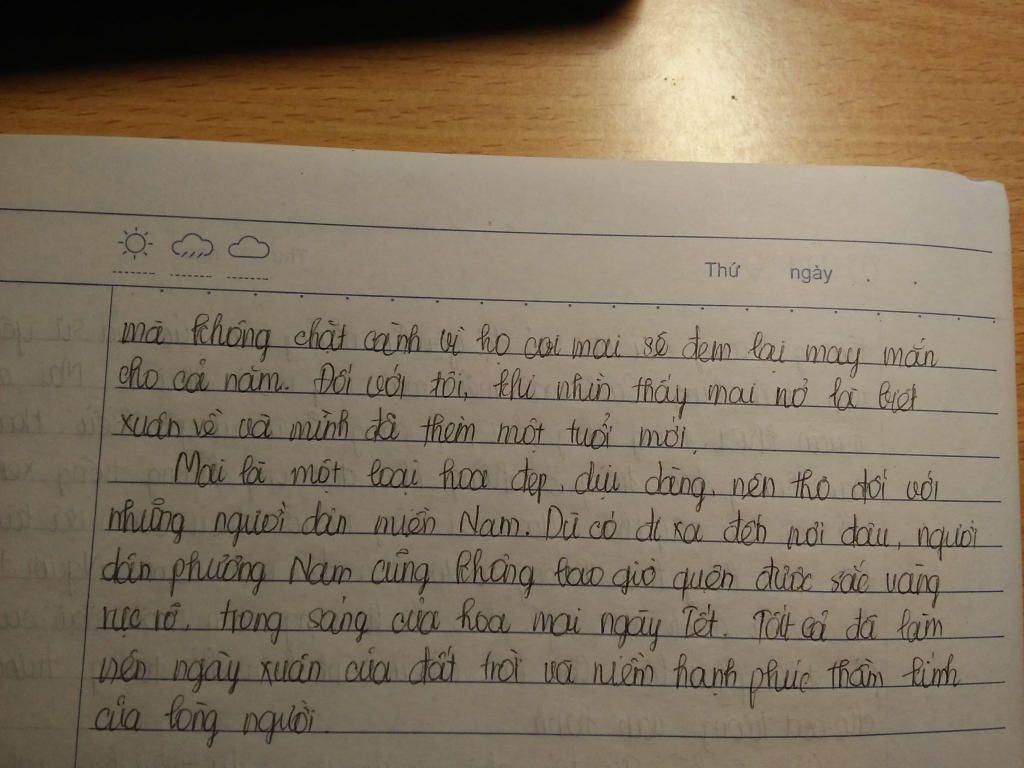 Thứ ngày
mà không chặt cành vì họ coi mai sẽ đem lại may mắn
cho cả năm. Đối với tôi, khi nhìn thấy mai nở là biết
xuân về và mình đã thêm một tuổi mới.
Mai là một loại hoa đẹp, dịu dàng, nên thơ đối với
những người dân miền Nam. Dù có đi xa đến nơi đâu, người
dân phương Nam cũng không bao giờ quên được sắc vàng
rực rỡ, trong sáng của hoa mai ngày Tết. Tất cả đã làm
nên ngày xuân của đất trời và niềm hạnh phúc thầm kính
của lòng người.